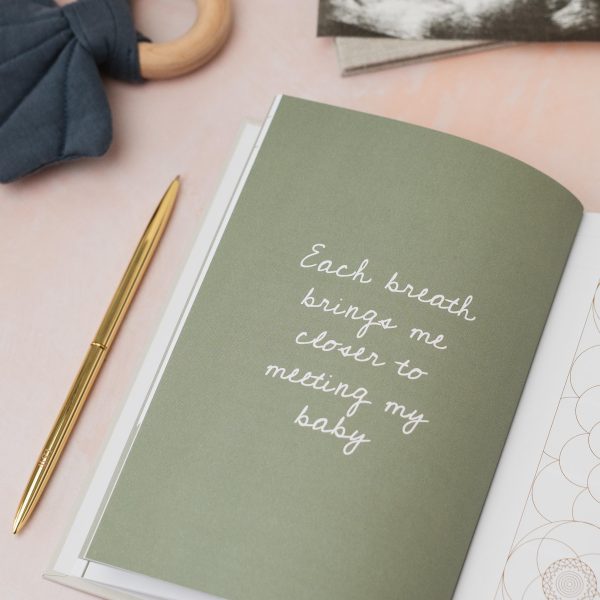 Each breath
brings me
closer to
meeting my
baby